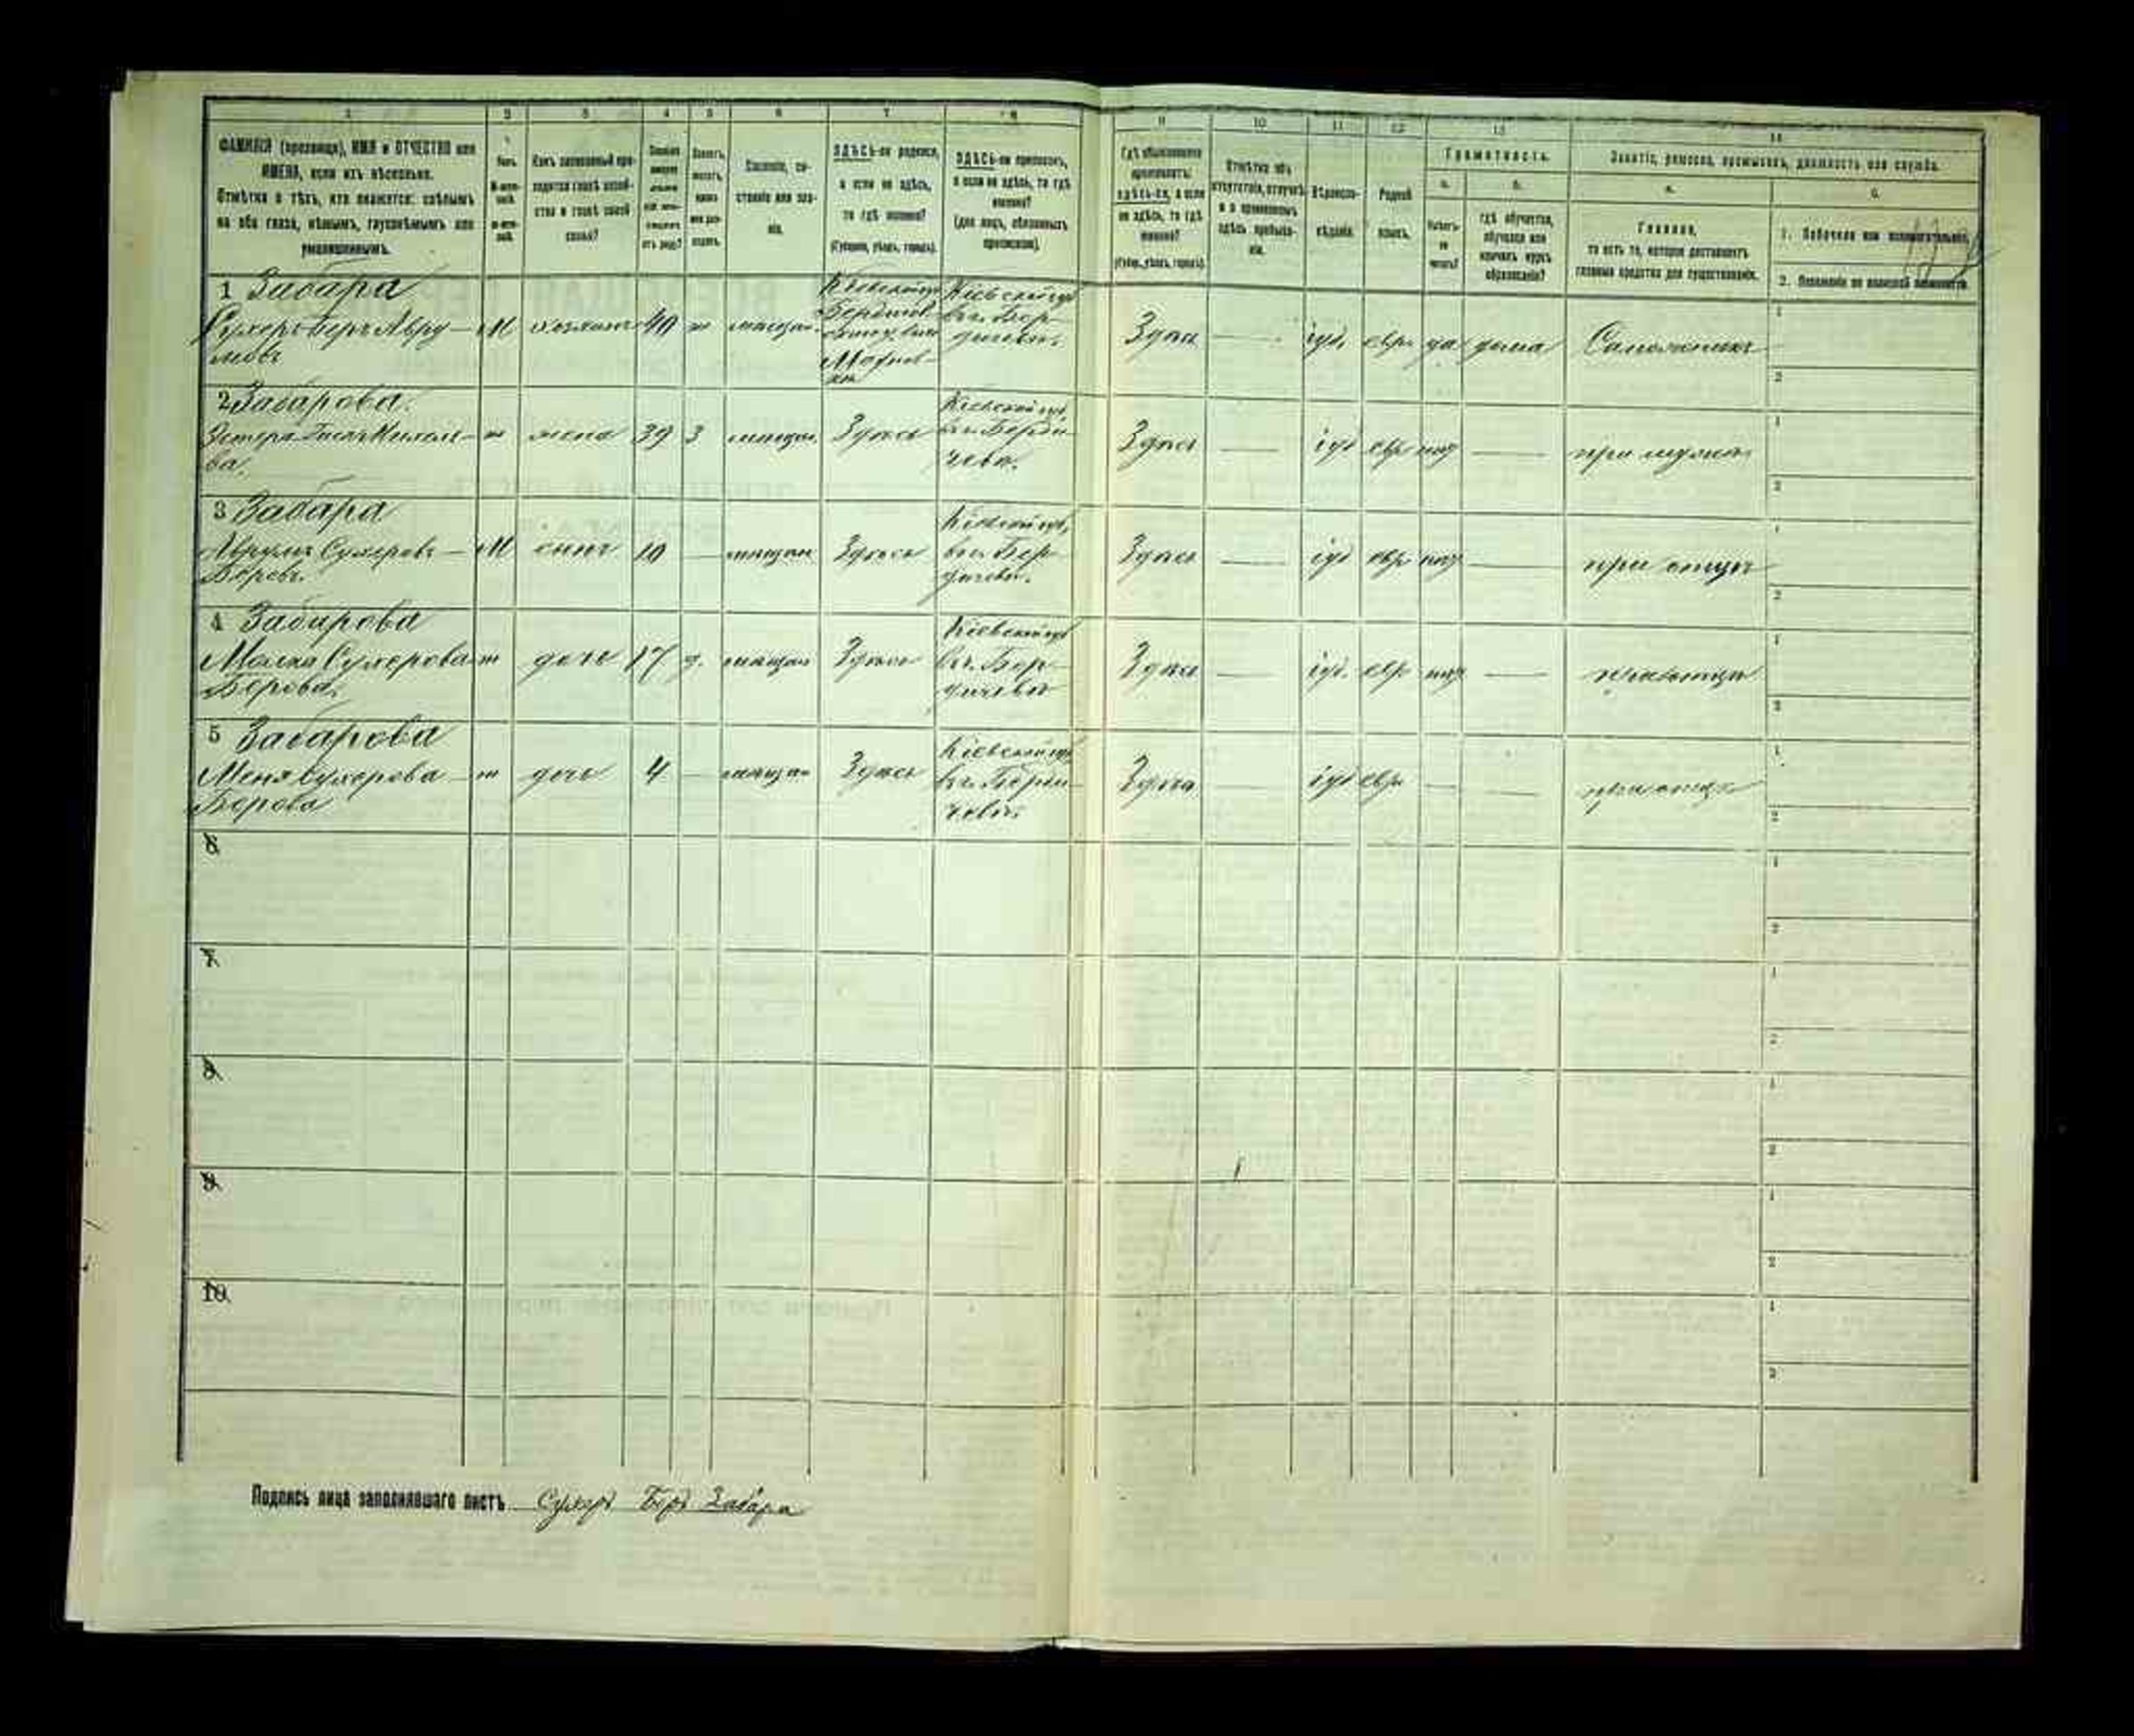 1 2 3 4 5 6 7 8 9 10 11 12 13 14
ФАМИЛІЯ (прозвище), ИМЯ и ОТЧЕСТВО или
ИМЕНА, если ихъ нѣсколько.
Отмѣтка о тѣхъ, кто окажется: слѣпымъ
на оба глаза, нѣмымъ, глухонѣмымъ или
умалишеннымъ.
Полъ.
Какъ записанный при-
ходится главѣ хозяй-
ства и главѣ своей
семьи?
Сословіе, со-
стояніе или зва-
ніе.
ЗДѢСЬ-ли родился,
а если не здѣсь,
то гдѣ именно?
(Губернія, уѣздъ, городъ).
ЗДѢСЬ-ли приписанъ,
а если не здѣсь, то гдѣ
именно?
(для лицъ, обязанныхъ
припискою).
Гдѣ обыкновенно
проживаетъ:
здѣсь-ли, а если
не здѣсь, то гдѣ
именно?
(Губер., уѣздъ, городъ).
Отмѣтка объ
отсутствіи, отлучкѣ
и о временномъ
здѣсь пребыва-
ніи.
Вѣроиспо-
вѣданіе.
Родной
языкъ.
Грамотность.
а.
б.
Умѣетъ-
ли
читать?
гдѣ обучается,
обучался или
кончилъ курсъ
образованія?
Занятіе, ремесло, промыселъ, должность или служба.
а.
б.
Главное,
то есть то, которое доставляетъ
главныя средства для существованія.
1. Побочное или вспомогательное.
2. Положеніе по воинской повинности.
1 Забара
Сухеръ-Беръ Авру-
мовъ
М хозяинъ 40 ж мѣщан.
Бердичев.
Кіевской губ.
въ Бер-
дичевѣ.
Здѣсь — іуд. евр. да дома
1
2
2 Забарова
ва.
ж жена 39 З мѣщан. Здѣсь
Кіевской губ.
въ Берди-
чевѣ.
Здѣсь — іуд евр нѣт — при мужѣ
1
2
3 Забара
Аврумъ Сухеровъ-
Беровъ.
М сынъ 10 — мѣщан Здѣсь
Кіевской губ,
въ Бер-
дичевѣ.
Здѣсь — іуд евр нѣт — при отцѣ
1
2
4 Забарова
Малка Сухерова
Берова.
ж дочь 17 д. мѣщан Здѣсь
Кіевской губ
въ Бер-
дичевѣ
Здѣсь — іуд. евр нѣт — при отцѣ
1
2
5 Забарова
Меня Сухерова
Берова
ж дочь 4 — мѣщан Здѣсь
Кіевской губ
въ Берди-
чевѣ
Здѣсь — іуд евр — — при отцѣ
1
2
6
1
2
7
1
2
8
1
2
9
1
2
10
1
2
Подпись лица заполнявшаго листъ Сухеръ Беръ Забара